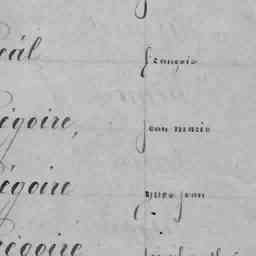 éal François
égoire, jean marie
égoire yves jean
égoire